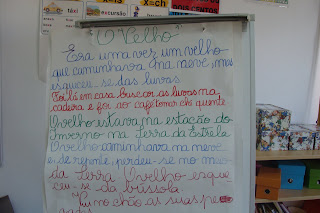 x=ch
excursão
"O Velho"
Era uma vez um velho
que caminhava na neve, mas
esqueceu-se das luvas
Foi lá em casa buscar as luvas na
cadeira e foi ao café tomar chá quente
O velho estava na estação do
Inverno na Serra da Estrela
O velho caminhava na neve
e, de repente, perdeu-se no meio
da Serra O velho esque
ceu-se da bússola.
no chão as suas pe